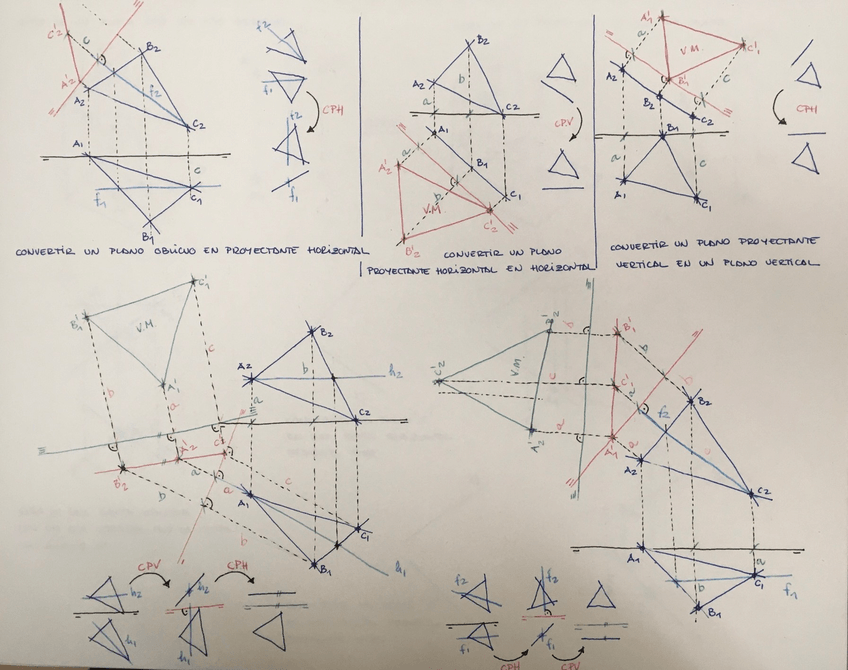 C'2
c
B2
A'2
A2
f2
C2
A1
c
C1
f1
B1
f2
f1
f2
f1
CPH
CONVERTIR UN PLANO OBLICUO EN PROYECTANTE HORIZONTAL
B2
A2
b
a
C2
A1
a
A'2
B1
b
V.M.
C1
C'2
B'2
CPV
CONVERTIR UN PLANO
PROYECTANTE HORIZONTAL EN HORIZONTAL
A'1
a
V.M.
C'1
A2
B'1
c
B2
C2
B1
a
c
A1
C1
CPH
CONVERTIR UN PLANO PROYECTANTE
VERTICAL EN UN PLANO VERTICAL
C'1
B'1
V.M.
c
B2
A2
b
h2
A'1
b
a
a
C2
A'2
C'2
B'2
a
a
c
b
A1
C1
b
B1
h1
CPV
CPH
h2
h2
h1
B'2
b
B'1
b
V.M.
C'2
c
C'1
b
a
f2
B2
A'2
a
A'1
a
c
A2
C2
A1
a
C1
b
f1
B1
f2
f2
f1
f1
CPH
CPV